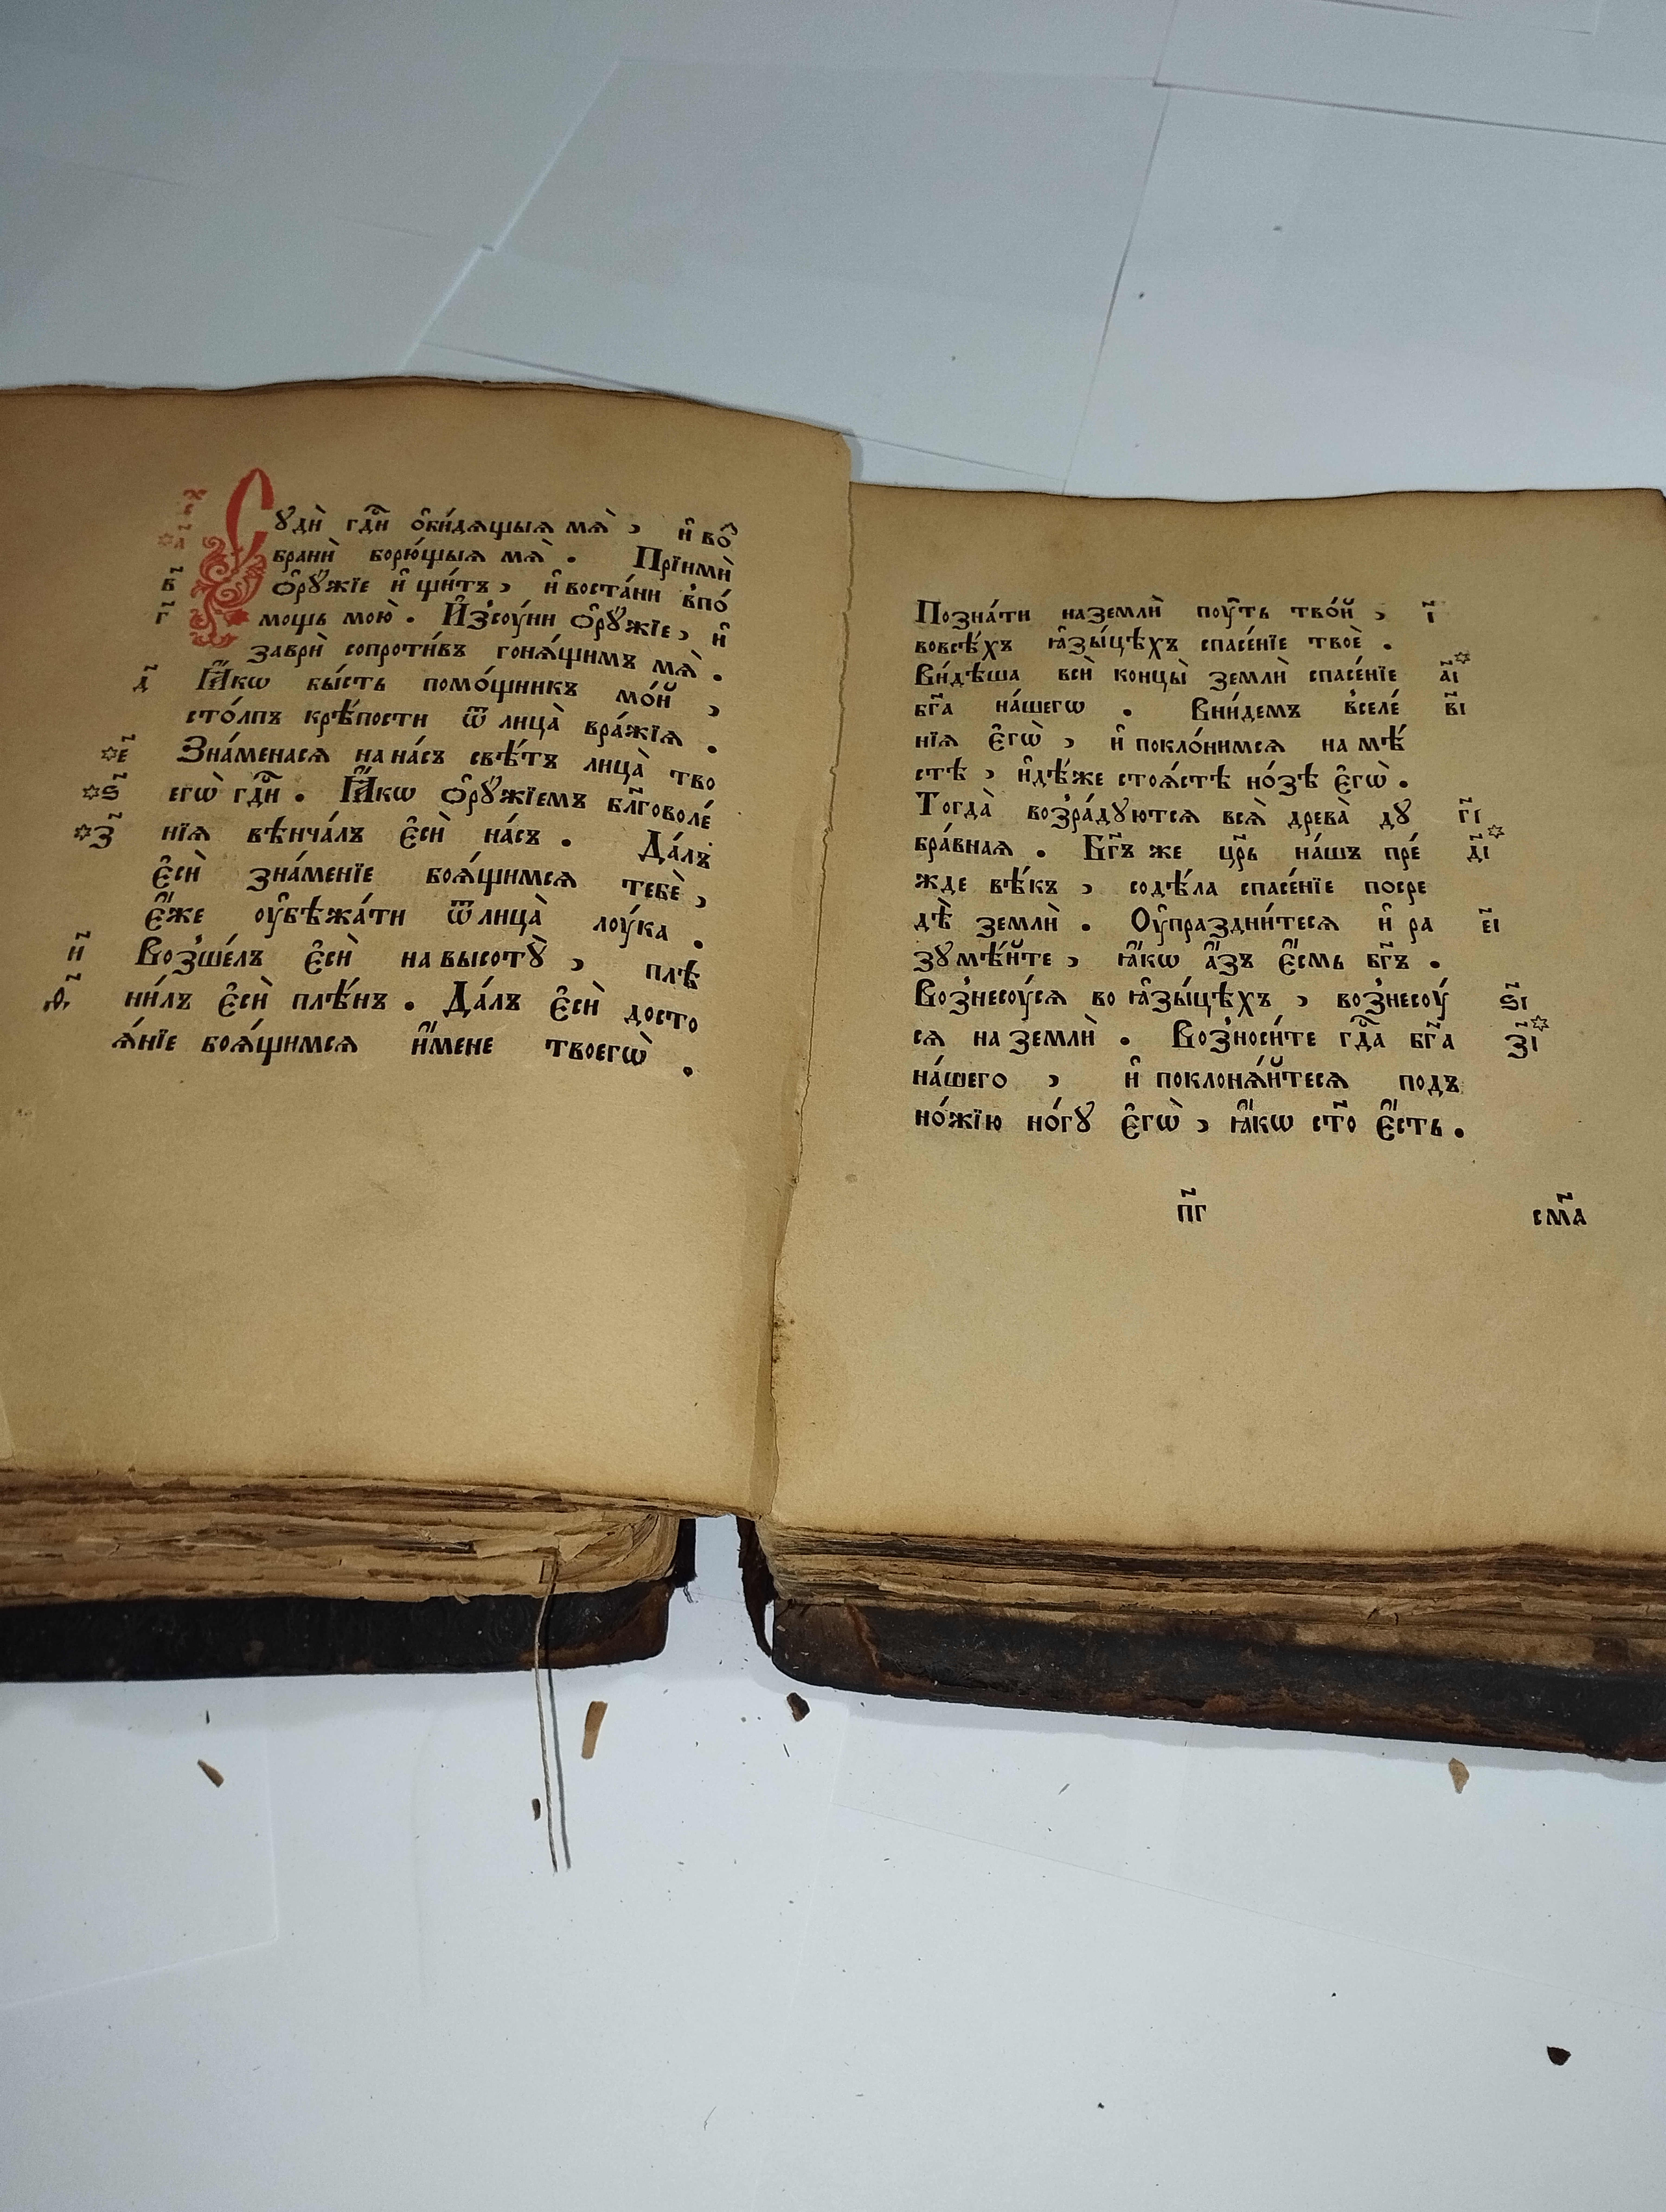 Сꙋдѝ гдⷭ҇и ѻ҆би́дѧщыѧ мѧ̀, и҆ во
брани̇̀ борю́щыѧ мѧ̀. Прїимѝ
ѻ҆рꙋ́жїе и҆ щи́тъ, и҆ воста́ни в̾по́
б҃
мощь мою̀. И҆з̾сꙋ́ни ѻ҆рꙋ́жїе, и҆
г҃
заврѝ сопроти́въ гонѧ́щимъ мѧ̀.
д҃ Ꙗ҆́кѡ бы́сть помо́щникъ мо́й,
сто́лпъ крѣ́пости ѿ лица̀ вра́жїѧ.
✡е҃ Зна́менасѧ на на́съ свѣ́тъ лица̀ тво
✡ѕ҃ егѡ̀ гдⷭ҇и. Ꙗ҆́кѡ ѻ҆рꙋ́жїемъ бл҃говоле́
✡з҃ нїѧ вѣнча́лъ є҆сѝ на́съ. Да́лъ
є҆сѝ зна́менїе боѧ́щимсѧ тебѐ,
є҆́же ᲂу҆бѣжа́ти ѿ лица̀ лꙋ́ка.
и҃ Воз̾ше́лъ є҆сѝ на высотꙋ̀, плѣ
ѳ҃ ни́лъ є҆сѝ плѣ́нъ. Да́лъ є҆сѝ досто
ѧ́нїе боѧ́щимсѧ и҆́мене твоегѡ̀.
Позна́ти на землѝ пꙋ́ть тво́й, і҃
во всѣ́хъ ꙗ҆зы́цѣхъ спасе́нїе твоѐ.
Ви́дѣша всѝ концы̀ землѝ спасе́нїе а҃і✡
бг҃а на́шегѡ. Вни́демъ в̾селе́ в҃і
нїѧ є҆гѡ̀, и҆ покло́нимсѧ на мѣ́
стѣ, и҆дѣ́же стоѧ́стѣ но́зѣ є҆гѡ̀.
Тогда̀ воз̾ра́дꙋютсѧ всѧ̀ древа̀ дꙋ г҃і
бра́внаѧ. Бг҃ъ же цр҃ь на́шъ пре́ д҃і✡
жде вѣ́къ, содѣ́ла спасе́нїе посре
дѣ̀ землѝ. Оу҆праздни́тесѧ и҆ ра е҃і
зꙋмѣ́йте, ꙗ҆́кѡ а҆́зъ є҆́смь бг҃ъ.
Воз̾несꙋ́сѧ во ꙗ҆зы́цѣхъ, воз̾несꙋ́ ѕ҃і
сѧ на землѝ. Воз̾носи́те гдⷭ҇а бг҃а з҃і✡
на́шего, и҆ поклонѧ́йтесѧ подъ
но́жїю но́гꙋ є҆гѡ̀, ꙗ҆́кѡ ст҃о є҆́сть.
п҃г см҃а